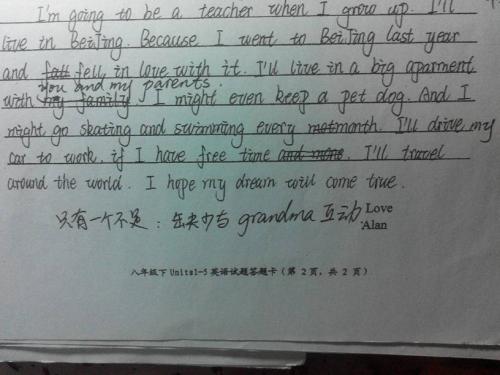 I'm going to be a teacher when I grow up. I'll
live in BeiJing. Because I went to BeiJing last year
and fall fell in love with it. I'll live in a big aparment
you and my parents.
with my family I might even keep a pet dog. And I
might go skating and swimming every month. I'll drive my
car to work, if I have free time and more. I'll travel
around the world. I hope my dream will come true.
只有一个不足：缺少与 grandma 互动
Love
Alan
八年级下 Units1-5 英语试题答题卡（第 2 页，共 2 页）